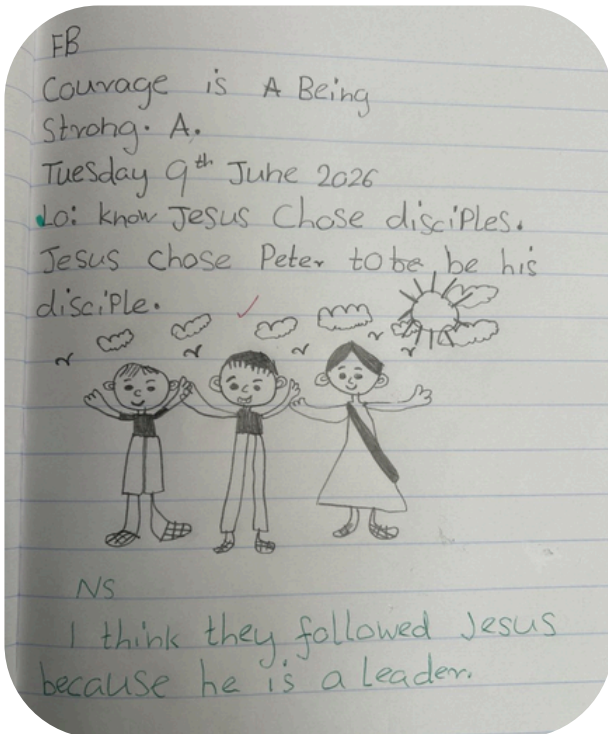 FB
Courage is A Being
Strong. A.
Tuesday 9th June 2026
Lo: know Jesus Chose disciples.
Jesus chose Peter to be be his
disciple.
NS
I think they followed Jesus
because he is a leader.